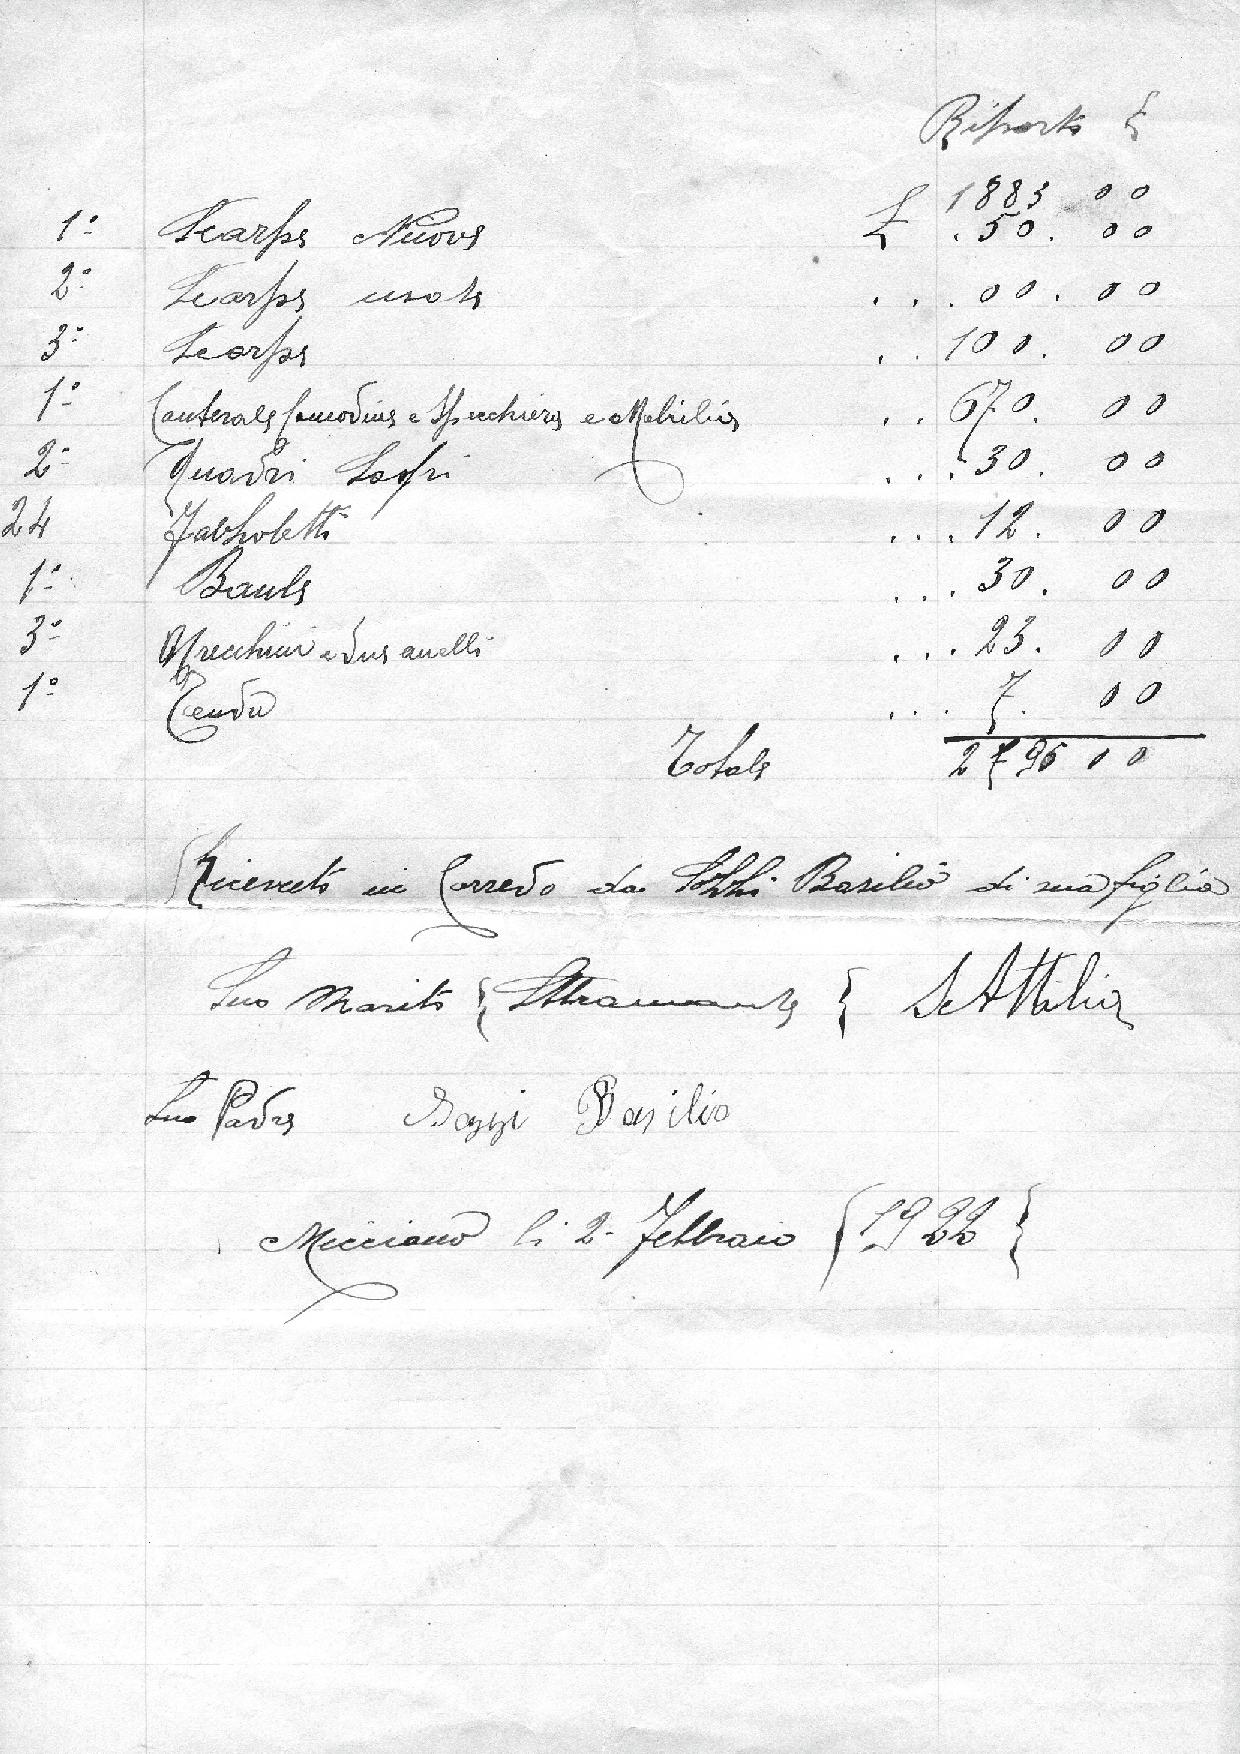 Riporto {
1883 00
1º Scarpe Nuove £ . 50 . 00
2º Scarpe usate . . . 00 . 00
3º Scarpe . . 100 . 00
1º Canterale Comodino e Specchiera e Mobilia . . 670 . 00
2º Quadri Sagri . . . 30 . 00
24 Fazzoletti . . . 12 . 00
1º Baule . . . 30 . 00
3º Orecchini e due anelli . . . 23 . 00
1º . . . 7 . 00
Totale 2796 00
Ricevuto in Corredo da Sozzi Basilio di sua figlia
Suo Marito { } Attilio
Suo Padre Sozzi Basilio
Micciano li 2- Febbraio { 1922 }